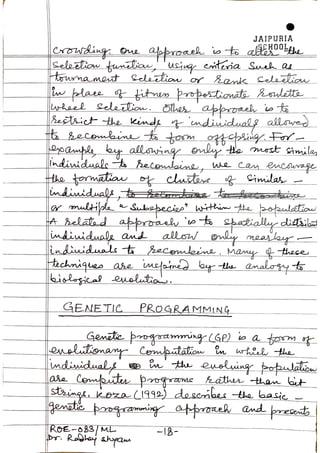 JAIPURIA
SCHOOL
crowding. One approach is to alter the
selection function, using criteria such as
tournament selection or rank selection
in place of fitness proportionate roulette
wheel selection. Other approach is to
restrict the kinds of individuals allowed
to recombine to form offspring. For-
example, by allowing only the most similar
individuals to recombine, we can encourage
the formation of clusters of similar-
individuals, to recombine, to recombine
or multiple "subspecies" within the population
A related approach is to spatially distribute
individuals and allow only nearby-
individuals to recombine. Many of these
techniques are inspired by the analogy to
biological evolution.
GENETIC PROGRAMMING
Genetic programming (GP) is a form of
evolutionary computation in which the
individuals in the evolving population
are computer programs rather than bit
strings. Koza (1992) describes the basic-
genetic programming approach and presents
ROE-083/ML
-18-
Dr. Radhey Shyam